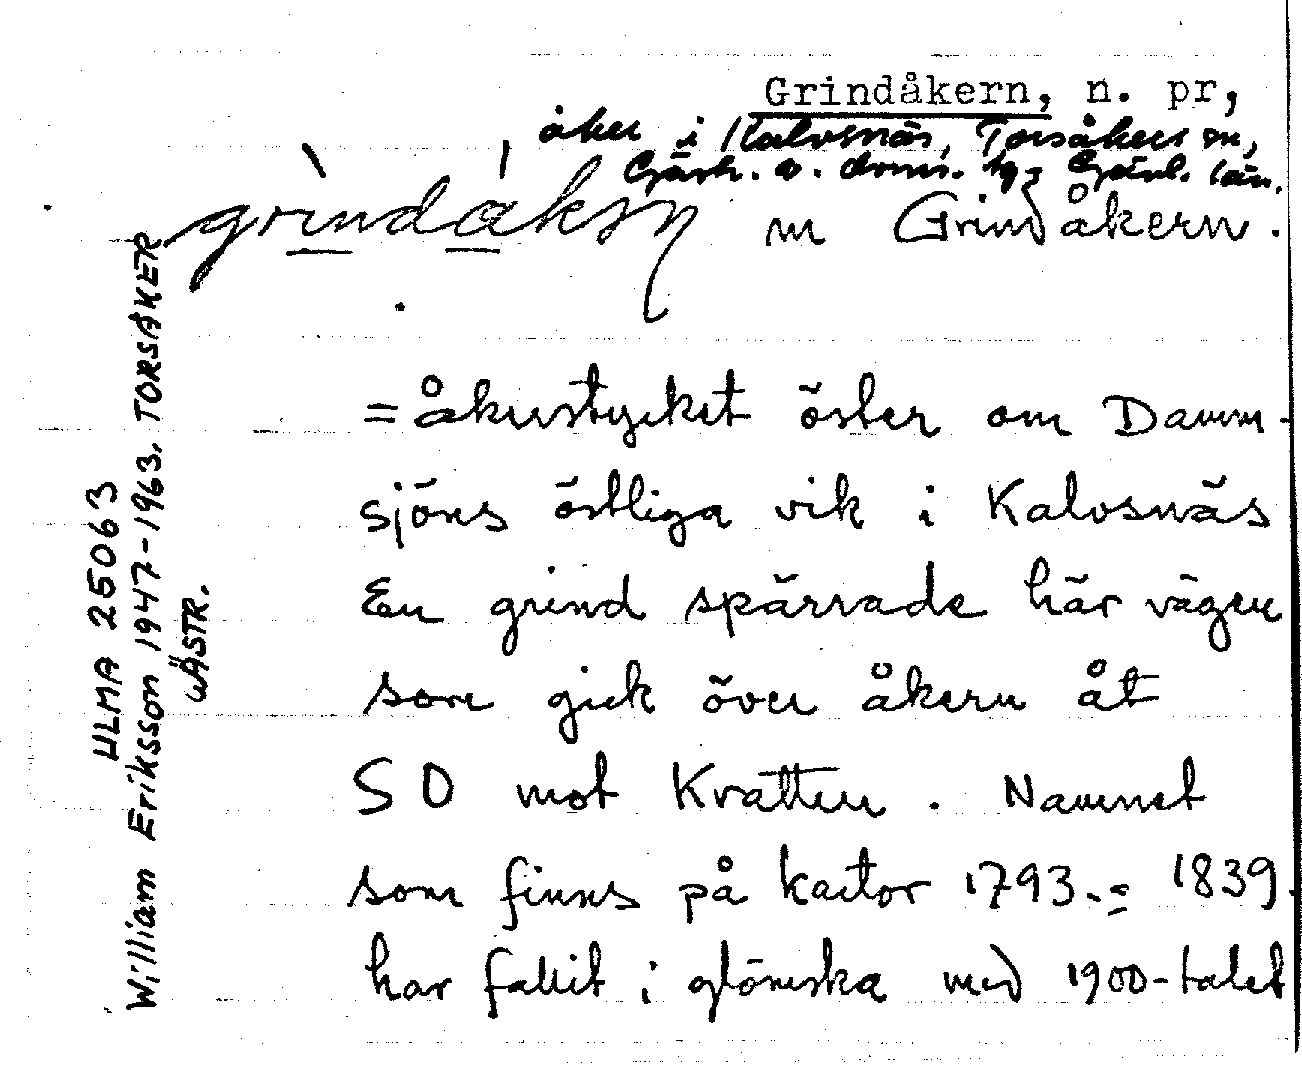 Grindåkern, n. pr,
åker i Kalvsnäs, Torsåkers sn,
Gästr. ö. doms. Gävl. län.
grindåksṇ m Grindåkern.
= åkerstycket öster om Damm-
sjöns östliga vik i Kalvsnäs
En grind spärrade här vägen
som gick över åkern åt
SO mot Kratten. Namnet
som finns på kartor 1793.= 1839.
har fallit i glömska med 1900-talet
ULMA 25063
William Eriksson 1947-1963. TORSÅKER
GÄSTR.